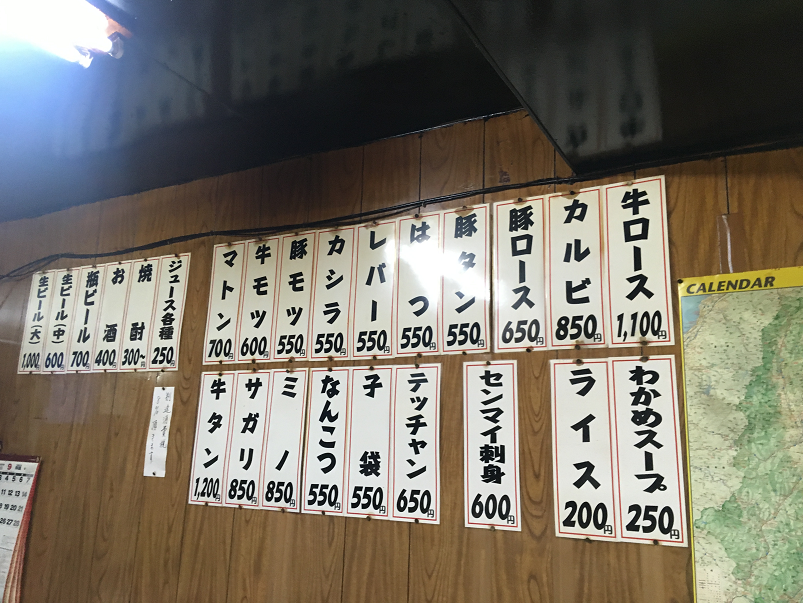 牛ロース 1,100円
カルビ 850円
豚ロース 650円
豚タン 550円
はつ 550円
レバー 550円
カシラ 550円
豚モツ 550円
牛モツ 600円
マトン 700円
ジュース各種 250円
焼酎 300円〜
お酒 400円
瓶ビール 700円
生ビール(中) 600円
生ビール(大) 1,000円
わかめスープ 250円
ライス 200円
センマイ刺身 600円
テッチャン 650円
子袋 550円
なんこつ 550円
ミノ 850円
サガリ 850円
牛タン 1,200円
CALENDAR
9